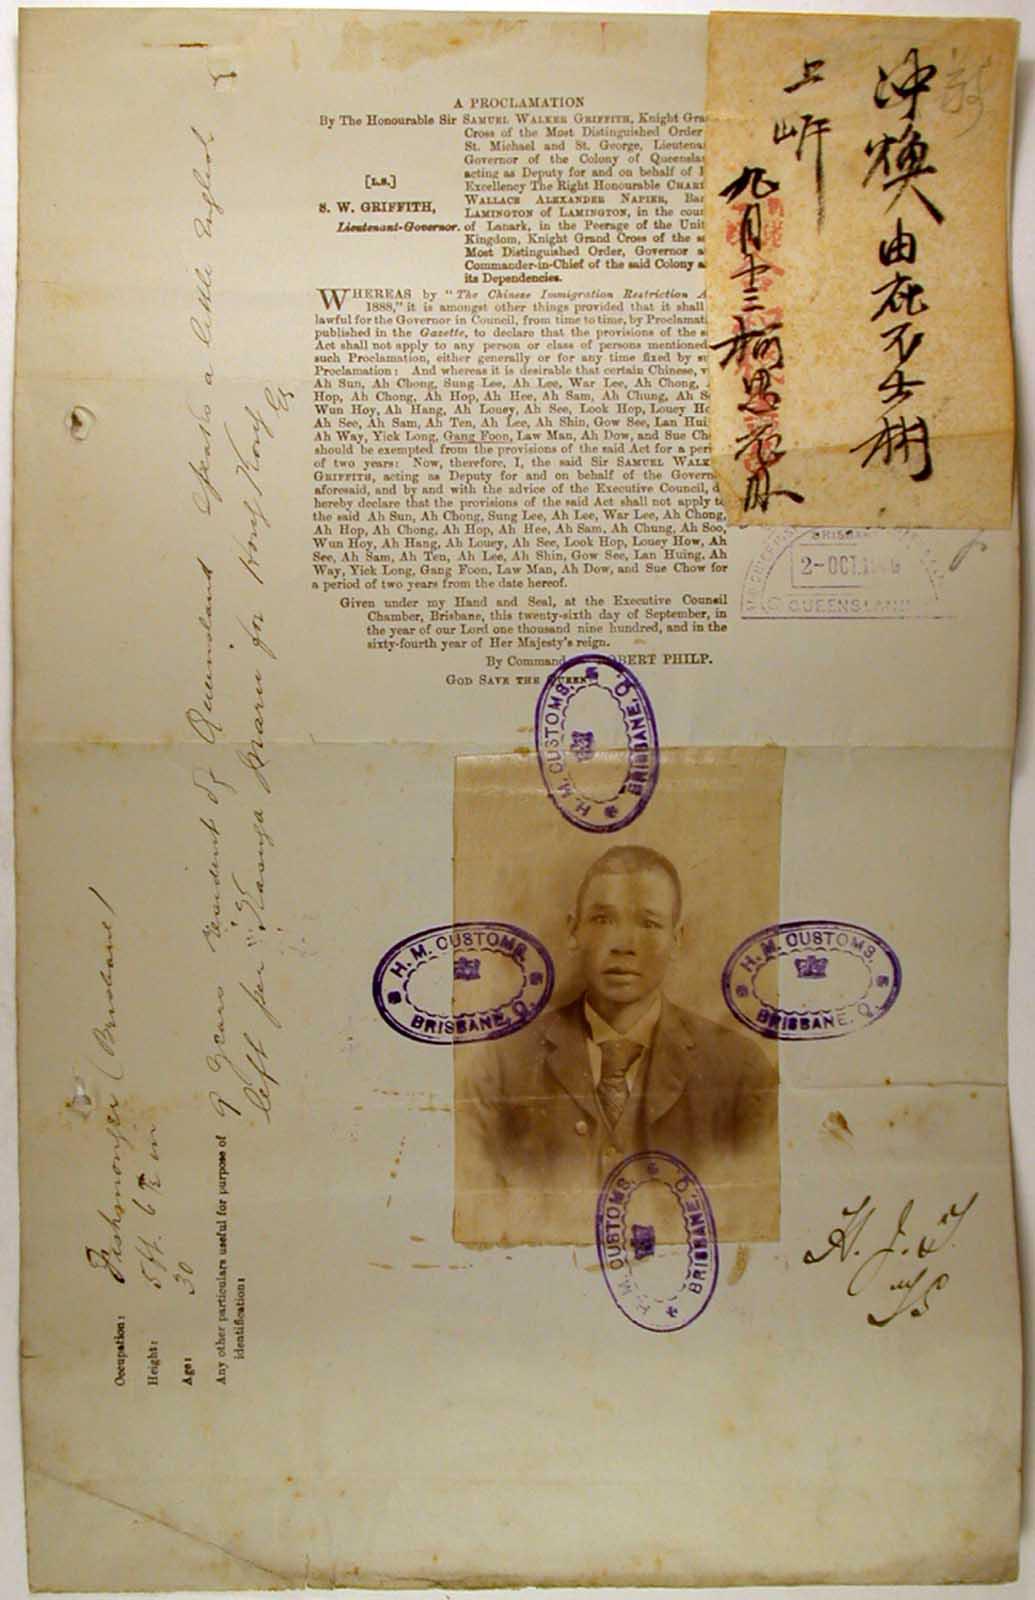 A PROCLAMATION
By The Honourable Sir SAMUEL WALKER GRIFFITH, Knight Gra
Cross of the Most Distinguished Order
St. Michael and St. George, Lieutena
Governor of the Colony of Queensla
acting as Deputy for and on behalf of
Excellency The Right Honourable CHAR
WALLACE ALEXANDER NAPIER, Ba
LAMINGTON of LAMINGTON, in the cou
of Lanark, in the Peerage of the Unit
Kingdom, Knight Grand Cross of the s
Most Distinguished Order, Governor a
Commander-in-Chief of the said Colony a
its Dependencies.
[L.S.]
S. W. GRIFFITH,
Lieutenant-Governor.
WHEREAS by "The Chinese Immigration Restriction A
1888," it is amongst other things provided that it shall
lawful for the Governor in Council, from time to time, by Proclamati
published in the Gazette, to declare that the provisions of the s
Act shall not apply to any person or class of persons mentioned
such Proclamation, either generally or for any time fixed by su
Proclamation: And whereas it is desirable that certain Chinese, v
Ah Sun, Ah Chong, Sung Lee, Ah Lee, War Lee, Ah Chong,
Hop, Ah Chong, Ah Hop, Ah Hee, Ah Sam, Ah Chung, Ah S
Wun Hoy, Ah Hang, Ah Louey, Ah See, Look Hop, Louey Ho
Ah See, Ah Sam, Ah Ten, Ah Lee, Ah Shin, Gow See, Lan Hui
Ah Way, Yick Long, Gang Foon, Law Man, Ah Dow, and Sue Ch
should be exempted from the provisions of the said Act for a peri
of two years: Now, therefore, I, the said Sir SAMUEL WALK
GRIFFITH, acting as Deputy for and on behalf of the Govern
aforesaid, and by and with the advice of the Executive Council, d
hereby declare that the provisions of the said Act shall not apply t
the said Ah Sun, Ah Chong, Sung Lee, Ah Lee, War Lee, Ah Chong,
Ah Hop, Ah Chong, Ah Hop, Ah Hee, Ah Sam, Ah Chung, Ah Soo,
Wun Hoy, Ah Hang, Ah Louey, Ah See, Look Hop, Louey How, Ah
See, Ah Sam, Ah Ten, Ah Lee, Ah Shin, Gow See, Lan Huing, Ah
Way, Yick Long, Gang Foon, Law Man, Ah Dow, and Sue Chow for
a period of two years from the date hereof.
Given under my Hand and Seal, at the Executive Council
Chamber, Brisbane, this twenty-sixth day of September, in
the year of our Lord one thousand nine hundred, and in the
sixty-fourth year of Her Majesty's reign.
By Command, ROBERT PHILP.
GOD SAVE THE QUEEN
冲煥由庇不士
上
九月十三
BRISBANE
2-OCT.19
QUEENSLAND
H. M. CUSTOMS,
BRISBANE, Q.
H. M. CUSTOMS,
BRISBANE, Q.
H. M. CUSTOMS,
BRISBANE, Q.
H. M. CUSTOMS,
BRISBANE, Q.
H. J. T.
Occupation: Fishmonger (Brisbane)
Height: 5 ft. 6 ½ in
Age: 30
Any other particulars useful for purpose of
identification:
9 years resident of Queensland speaks a little English
left per "Kasuga Maru" for Hong Kong